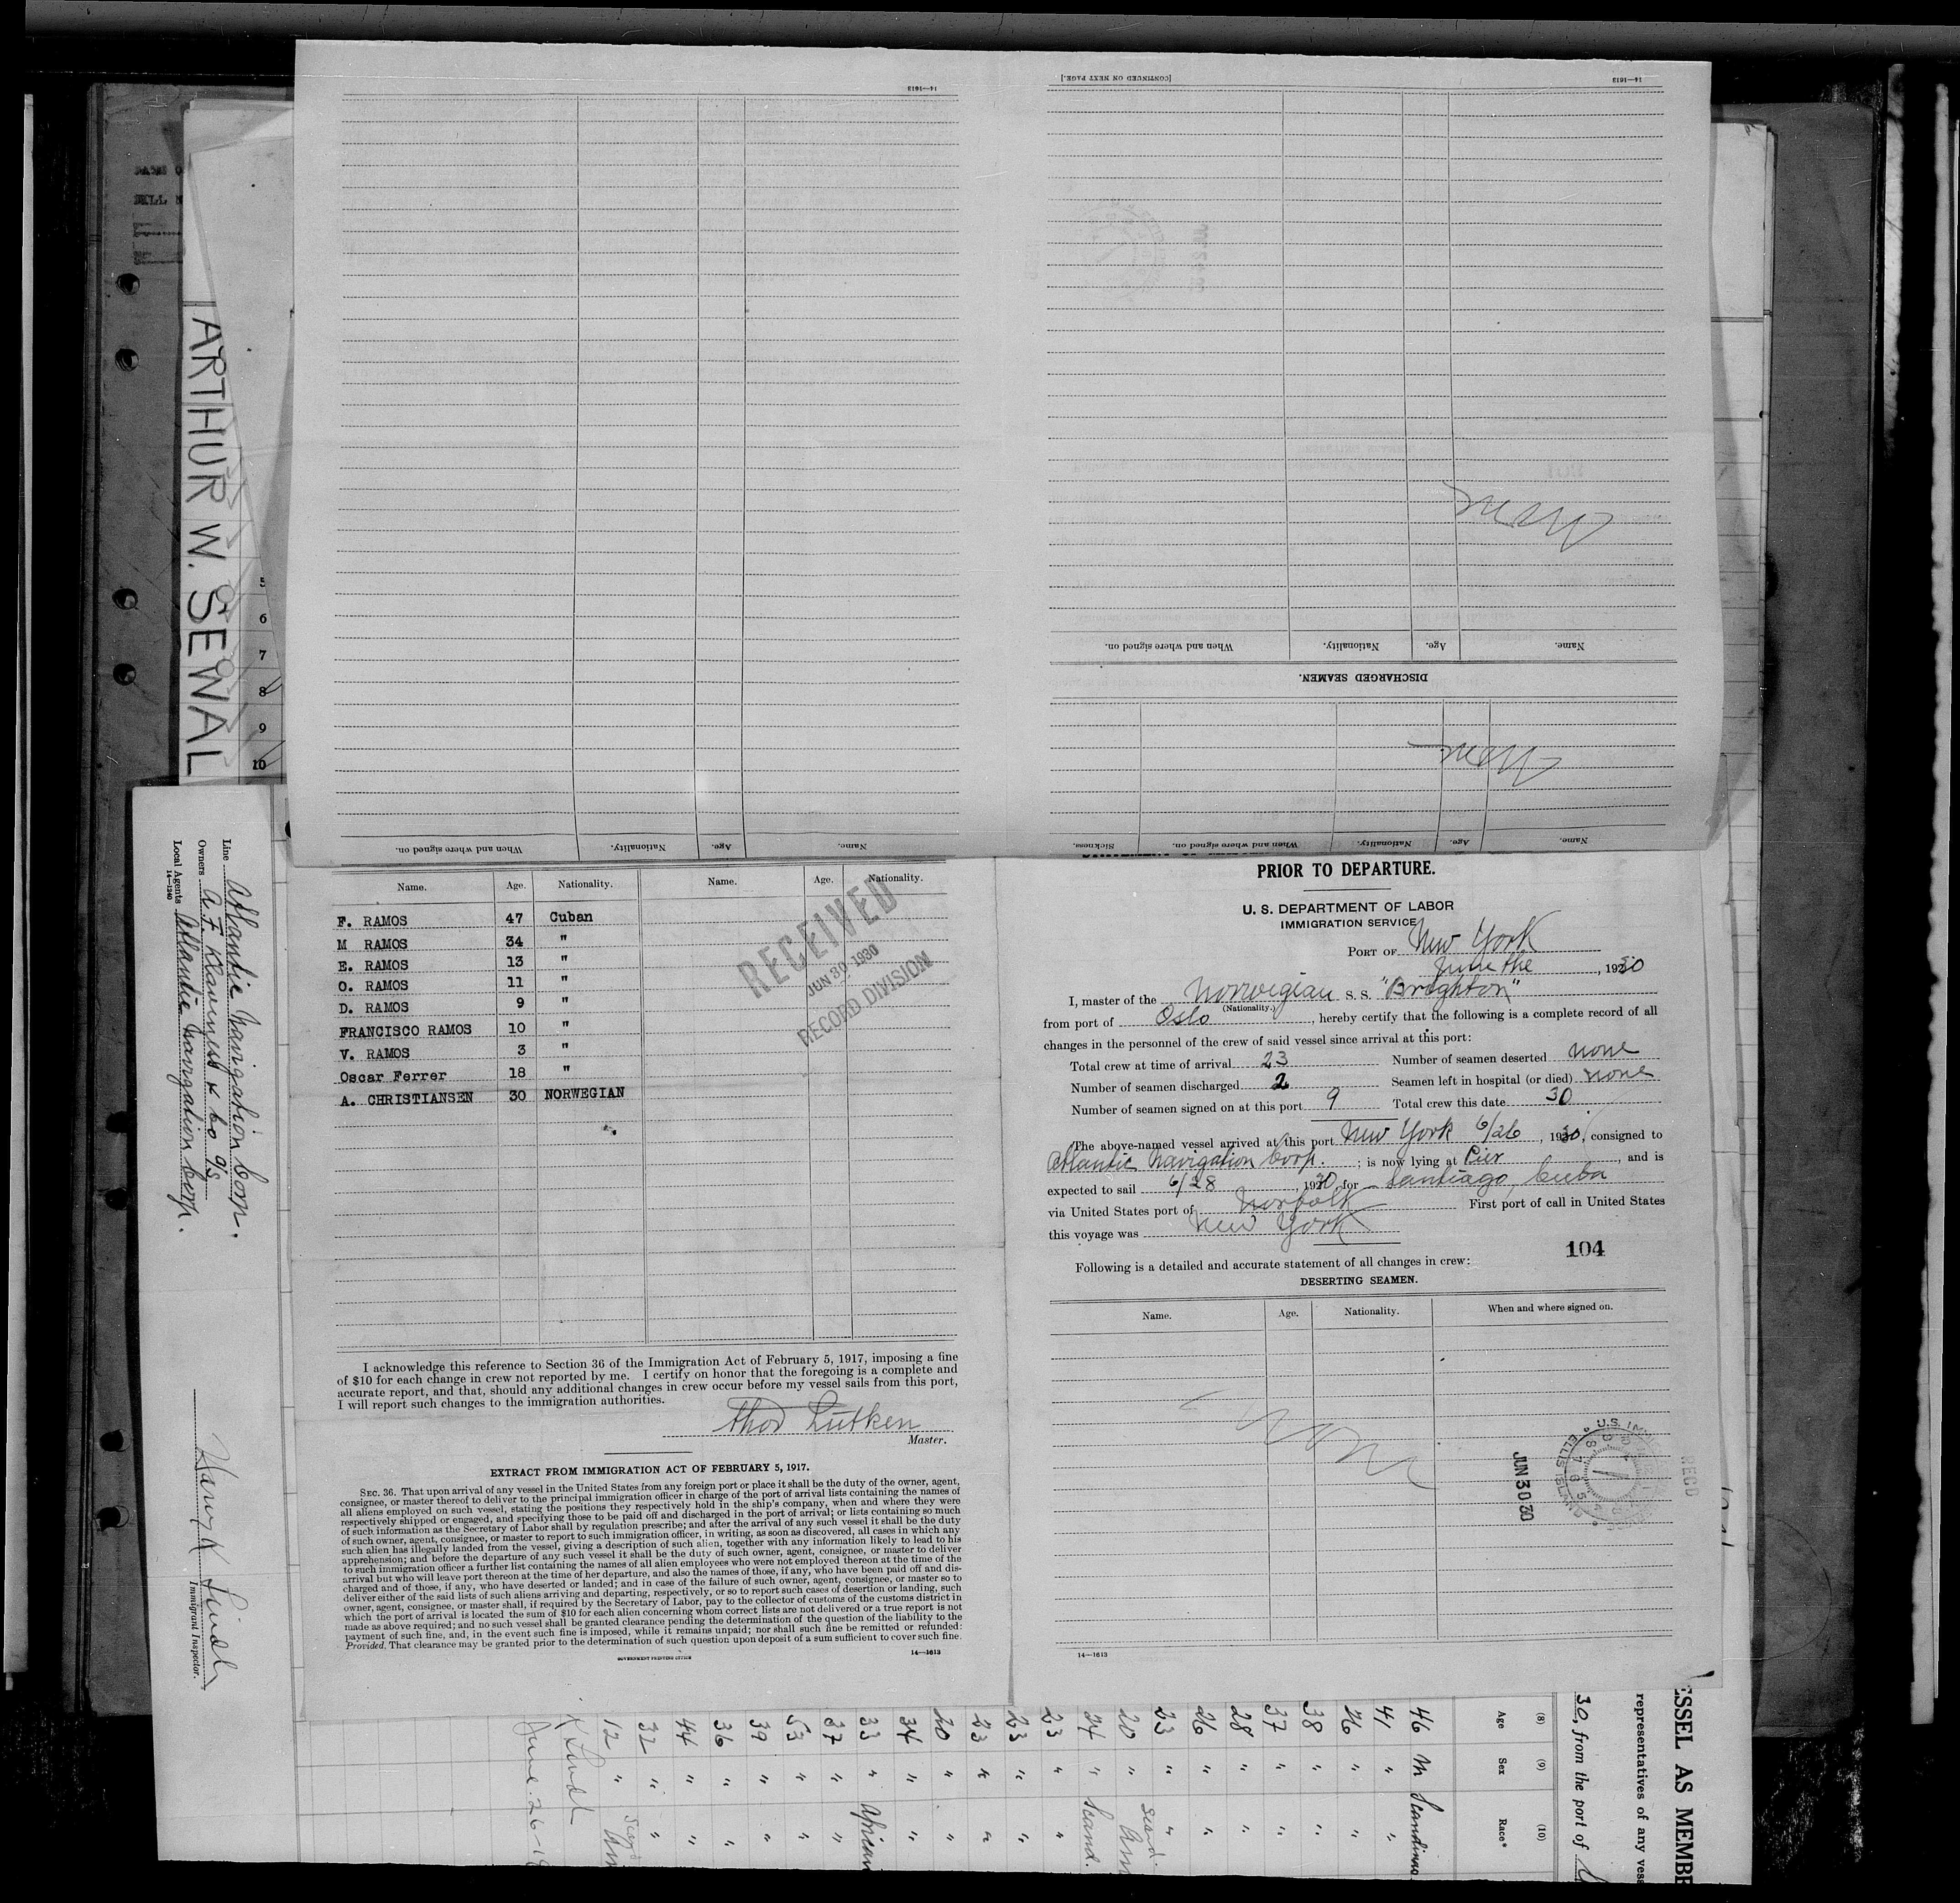 [CONTINUED ON NEXT PAGE.]
14—1613
14—1613
Name.
Age.
Nationality.
When and where signed on.
DISCHARGED SEAMEN.
Name.
Age.
Nationality.
When and where signed on.
Sickness.
Name.
Age.
Nationality.
When and where signed on.
ARTHUR W. SEWAL
5
6
7
8
9
10
Line Atlantic Navigation Corp.
Owners A. F. Klaveness & Co A/S
Local Agents Atlantic Navigation Corp.
14—1240
Immigrant Inspector.
Name. Age. Nationality. Name. Age. Nationality.
F. RAMOS 47 Cuban
M RAMOS 34 "
E. RAMOS 13 "
O. RAMOS 11 "
D. RAMOS 9 "
FRANCISCO RAMOS 10 "
V. RAMOS 3 "
Oscar Ferrer 18 "
A. CHRISTIANSEN 30 NORWEGIAN
RECEIVED
JUN 30 1930
RECORD DIVISION
I acknowledge this reference to Section 36 of the Immigration Act of February 5, 1917, imposing a fine
of $10 for each change in crew not reported by me. I certify on honor that the foregoing is a complete and
accurate report, and that, should any additional changes in crew occur before my vessel sails from this port,
I will report such changes to the immigration authorities.
Thor Lütken
Master.
EXTRACT FROM IMMIGRATION ACT OF FEBRUARY 5, 1917.
SEC. 36. That upon arrival of any vessel in the United States from any foreign port or place it shall be the duty of the owner, agent,
consignee, or master thereof to deliver to the principal immigration officer in charge of the port of arrival lists containing the names of
all aliens employed on such vessel, stating the positions they respectively hold in the ship's company, when and where they were
respectively shipped or engaged, and specifying those to be paid off and discharged in the port of arrival; or lists containing so much
of such information as the Secretary of Labor shall by regulation prescribe; and after the arrival of any such vessel it shall be the duty
of such owner, agent, consignee, or master to report to such immigration officer, in writing, as soon as discovered, all cases in which any
such alien has illegally landed from the vessel, giving a description of such alien, together with any information likely to lead to his
apprehension; and before the departure of any such vessel it shall be the duty of such owner, agent, consignee, or master to deliver
to such immigration officer a further list containing the names of all alien employees who were not employed thereon at the time of the
arrival but who will leave port thereon at the time of her departure, and also the names of those, if any, who have been paid off and dis-
charged and of those, if any, who have deserted or landed; and in case of the failure of such owner, agent, consignee, or master so to
deliver either of the said lists of such aliens arriving and departing, respectively, or so to report such cases of desertion or landing, such
owner, agent, consignee, or master shall, if required by the Secretary of Labor, pay to the collector of customs of the customs district in
which the port of arrival is located the sum of $10 for each alien concerning whom correct lists are not delivered or a true report is not
made as above required; and no such vessel shall be granted clearance pending the determination of the question of the liability to the
payment of such fine, and, in the event such fine is imposed, while it remains unpaid; nor shall such fine be remitted or refunded:
Provided, That clearance may be granted prior to the determination of such question upon deposit of a sum sufficient to cover such fine.
GOVERNMENT PRINTING OFFICE
14—1613
PRIOR TO DEPARTURE.
U. S. DEPARTMENT OF LABOR
IMMIGRATION SERVICE
PORT OF New York
June the , 1930
I, master of the Norwegian S. S. "Brighton"
(Nationality.)
from port of Oslo, hereby certify that the following is a complete record of all
changes in the personnel of the crew of said vessel since arrival at this port:
Total crew at time of arrival 23 Number of seamen deserted none
Number of seamen discharged 2 Seamen left in hospital (or died) none
Number of seamen signed on at this port 9 Total crew this date 30
The above-named vessel arrived at this port New York 6/26, 1930, consigned to
Atlantic Navigation Corp.; is now lying at Pier, and is
expected to sail 6/28, 1930, for Santiago, Cuba
via United States port of Norfolk First port of call in United States
this voyage was New York
104
Following is a detailed and accurate statement of all changes in crew:
DESERTING SEAMEN.
Name. Age. Nationality. When and where signed on.
None
JUN 30 30
U.S. IM
ELLIS ISLAND
REC'D
14—1613
ESSEL AS MEMBE
representatives of any vess
30, from the port of
(8) (9) (10)
Age Sex Race*
46 M Scandinav
41 " "
26 " "
38 " "
37 " "
28 " "
26 " "
23 " "
20 " Scand.
24 " Scand.
23 " "
23 " "
23 " "
20 " "
34 " "
33 " African
37 " "
53 " "
39 " "
36 " "
44 " "
32 " "
12 "
June 26-19